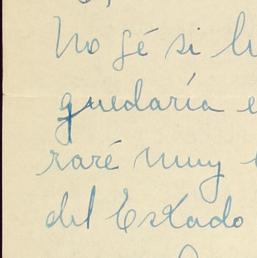 No sé si
quedaría
raré muy
del Estado